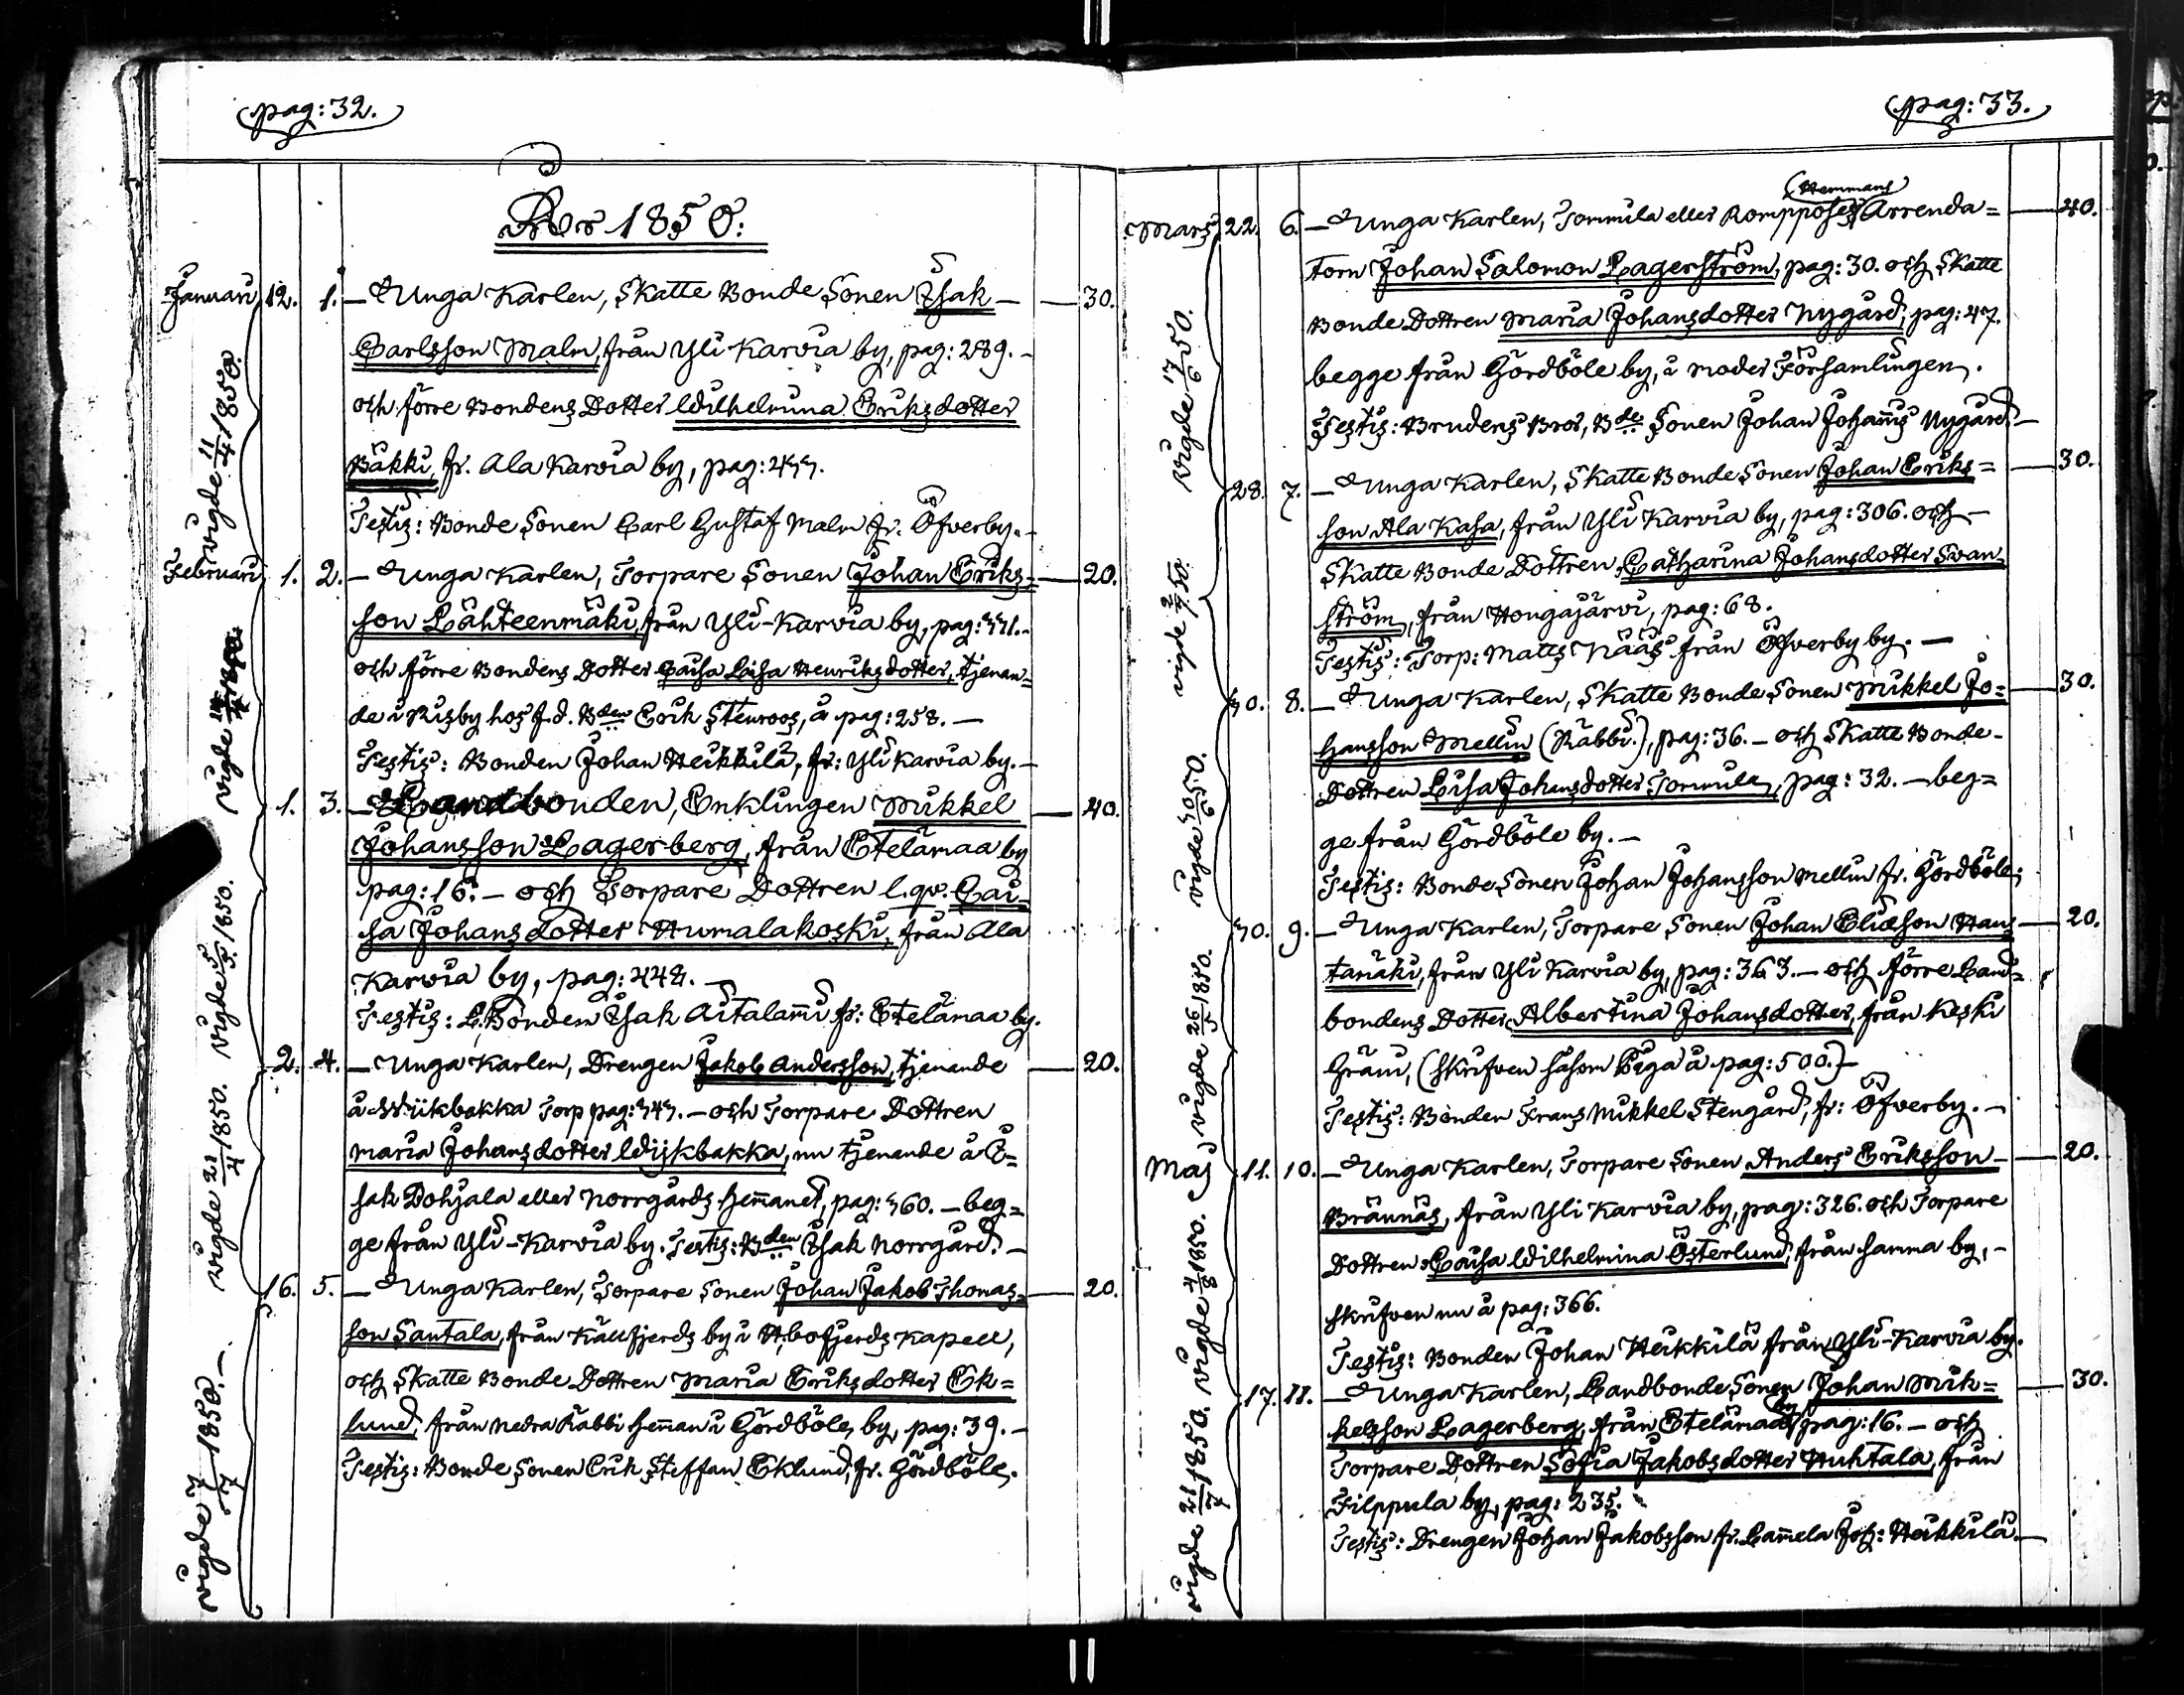 pag: 32.
År 1850:
Januari 12. 1. — Unga Karlen, Skatte Bonde Sonen Isak — 30.
Carlsson Malm, från Yli Karvia by, pag: 289. -
och förre Bondens Dotter Wilhelmina Eriksdotter
Bäkki, fr. Ala Karvia by, pag:
Testis: Bonde Sonen Carl Gustaf Malm fr. Öfverby. -
vigde 11/4 1850.
Februari 1. 2. — Unga Karlen, Torpare Sonen Johan Eriks= — 20.
son Lähteenmäki, från Yli-Karvia by, pag: 331. -
och förre Bondens Dotter Caisa Lisa Henriksdotter, tjenan=
de i Nisby hos f.d. Bden Erik Stenroos, å pag: 258. —
Testis: Bonden Johan Heikkilä, fr: Yli Karvia by. —
vigde
1. 3. — Landbonden, Enklingen Mikkel — 40.
Johansson Lagerberg, från Etelämaa by
pag: 16. — och Torpare Dottren l.qv. Cai=
sa Johansdotter Humalakoski, från Ala
Karvia by, pag: 448. —
Testis: L.Bonden Isak Aitalammi fr: Etelämaa by.
vigde 5/5 1850.
2. 4. — Unga Karlen, Drengen Jakob Andersson, tjenande — 20.
å Wiikbakka Torp pag: 343. — och Torpare Dottren
Maria Johansdotter Wijkbakka, nu tjenande å I=
sak Dohjala eller Norrgårds hemanet, pag: 360. — beg=
ge från Yli-Karvia by. Testis: Bden Isak Norrgård. —
vigde 21/4 1850.
16. 5. — Unga Karlen, Torpare Sonen Johan Jakob Thomas= — 20.
son Santala, från Källfjerds by i Hvbofjerds Kapell,
och Skatte Bonde Dottren Maria Eriksdotter Ek=
lund, från Nedra Räbbi heman i Gördböle by, pag: 39. —
Testis: Bonde Sonen Erik Steffan Eklund, fr. Gördböle.
vigde 7/7 1850. —
pag: 33.
Hemmans
Mars 22. 6. — Unga Karlen, Tommila eller Romppos Arrenda= — 40.
torn Johan Salomon Lagerström, pag: 30. och Skatte
Bonde Dottren Maria Johansdotter Nygård, pag: 47.
begge från Gördböle by, i moder Församlingen.
Testis: Brudens Bror, Bde Sonen Johan Johans Nygård. —
vigde 17/6 50.
28. 7. — Unga Karlen, Skatte Bonde Sonen Johan Eriks= — 30.
son Ala Kasa, från Yli Karvia by, pag: 306. och —
Skatte Bonde Dottren Catharina Johansdotter Svan
ström, från Hongajärvi, pag: 68.
Testis: Torp: Matts Nääs från Öfverby by. —
vigde
30. 8. — Unga Karlen, Skatte Bonde Sonen Mikkel Jo= — 30.
hansson Mellin (Räbbi.), pag: 36. — och Skatte Bonde-
Dottren Lisa Johansdotter Tommila, pag: 32. — beg=
ge från Gördböle by. —
Testis: Bonde Sonen Johan Johansson Mellin fr. Gördböle;
vigde
30. 9. — Unga Karlen, Torpare Sonen Johan Eliæson Han — 20.
tamäki, från Yli Karvia by, pag: 363. — och förre Land=
bondens Dotter Albertina Johansdotter, från Keski
Gräni, (Skrifven såsom Piga å pag: 500.) —
Testis: Bonden Frans Mikkel Stengård, fr: Öfverby. —
vigde 26/5 1850.
Maj 11. 10. — Unga Karlen, Torpare Sonen Anders Eriksson — 20.
Brännäs, från Yli Karvia by, pag: 326. och Torpare
Dottren Caisa Wilhelmina Österlund, från samma by, -
skrifven nu å pag: 366.
Testis: Bonden Johan Heikkilä från Yli-Karvia by.
vigde 4/8 1850.
17. 11. — Unga Karlen, Landbonde Sonen Johan Mik= — 30.
kelsson Lagerberg, från Etelämaa by pag: 16. — och
Torpare Dottren Sofia Jakobsdotter Huhtala, från
Filppula by, pag: 235.
Testis: Drengen Johan Jakobsson fr. Lamela Joh: Heikkilä. —
vigde 21/7 1850.